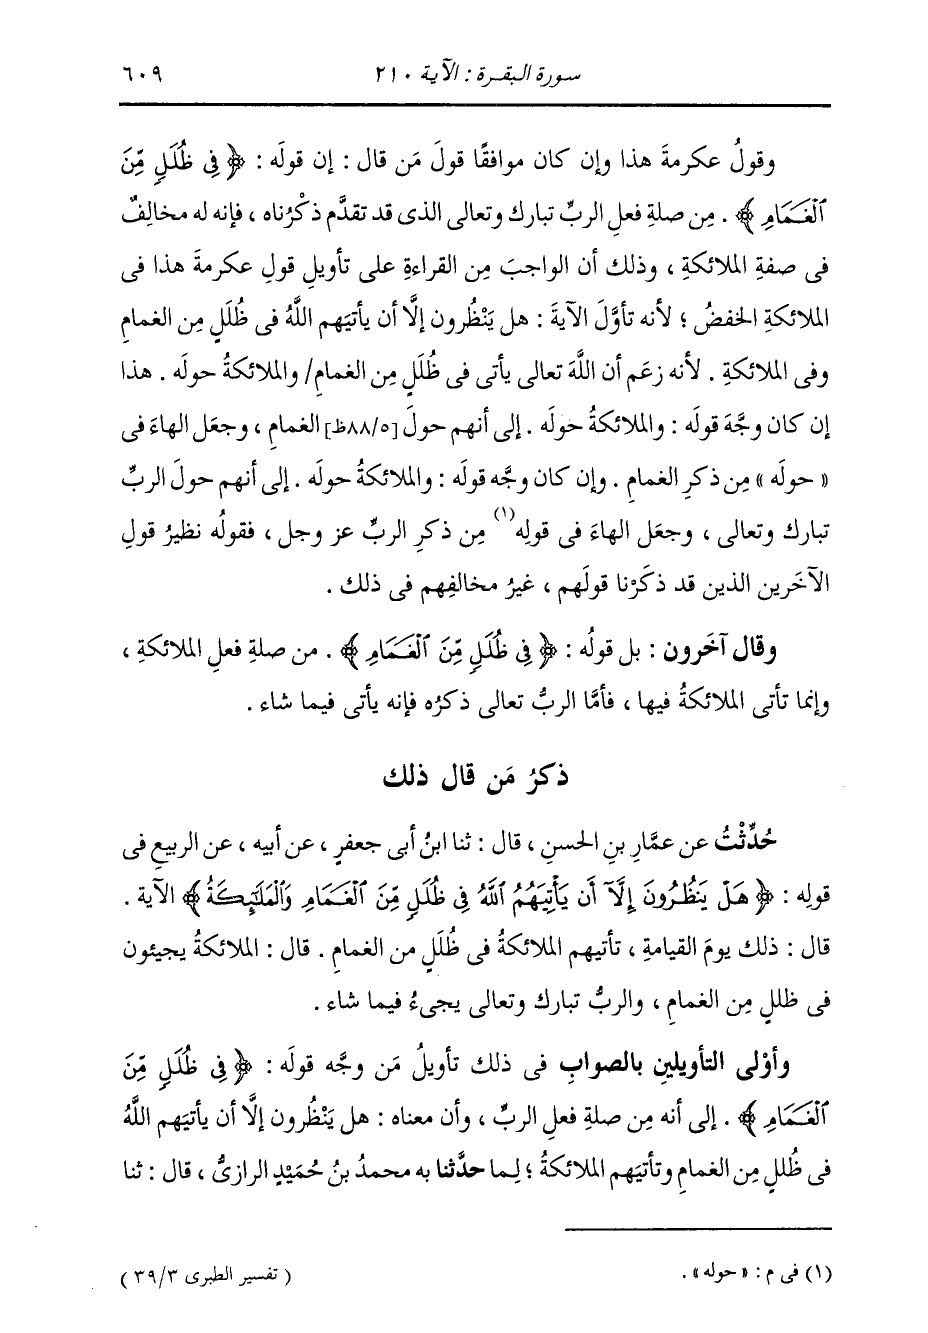 سورة البقرة : الآية ٢١٠ ٦٠٩
وقولُ عكرمةَ هذا وإن كان موافقًا قولَ مَن قال : إن قولَه : ﴿ فِى ظُلَلٍ مِّنَ
ٱلْغَمَامِ ﴾ . مِن صلةِ فعلِ الربِّ تبارك وتعالى الذى قد تقدَّم ذكْرُناه ، فإنه له مخالِفٌ
فى صفةِ الملائكةِ ، وذلك أن الواجبَ مِن القراءةِ على تأويلِ قولِ عكرمةَ هذا فى
الملائكةِ الخفضُ ؛ لأنه تأوَّلَ الآيةَ : هل يَنْظُرون إلَّا أن يأتيَهم اللَّهُ فى ظُللٍ مِن الغمامِ
وفى الملائكةِ . لأنه زعَم أن اللَّهَ تعالى يأتى فى ظُلَلٍ مِن الغمامِ/ والملائكةُ حولَه . هذا
إن كان وجَّهَ قولَه : والملائكةُ حولَه . إلى أنهم حولَ [٨٨/٥ظ] الغمامِ ، وجعَل الهاءَ فى
« حولَه » مِن ذكرِ الغمامِ . وإن كان وجَّه قولَه : والملائكةُ حولَه . إلى أنهم حولَ الربِّ
تبارك وتعالى ، وجعَل الهاءَ فى قولِه(١) مِن ذكرِ الربِّ عز وجل ، فقولُه نظيرُ قولِ
الآخَرين الذين قد ذكَرْنا قولَهم ، غيرُ مخالفِهم فى ذلك .
وقال آخَرون : بل قولُه : ﴿ فِى ظُلَلٍ مِّنَ ٱلْغَمَامِ ﴾ . من صلةِ فعلِ الملائكةِ ،
وإنما تأتى الملائكةُ فيها ، فأمَّا الربُّ تعالى ذكرُه فإنه يأتى فيما شاء .
ذكرُ مَن قال ذلك
حُدِّثْتُ عن عمَّارِ بنِ الحسنِ ، قال : ثنا ابنُ أبى جعفرٍ ، عن أبيه ، عن الربيعِ فى
قولِه : ﴿ هَلْ يَنظُرُونَ إِلَّآ أَن يَأْتِيَهُمُ ٱللَّهُ فِى ظُلَلٍ مِّنَ ٱلْغَمَامِ وَٱلْمَلَٰٓئِكَةُ ﴾ الآية .
قال : ذلك يومَ القيامةِ ، تأتيهم الملائكةُ فى ظُلَلٍ من الغمامِ . قال : الملائكةُ يجيئون
فى ظللٍ مِن الغمامِ ، والربُّ تبارك وتعالى يجىءُ فيما شاء .
وأوْلى التأويلين بالصوابِ فى ذلك تأويلُ مَن وجَّه قولَه : ﴿ فِى ظُلَلٍ مِّنَ
ٱلْغَمَامِ ﴾ . إلى أنه مِن صلةِ فعلِ الربِّ ، وأن معناه : هل يَنْظُرون إلَّا أن يأتيَهم اللَّهُ
فى ظُللٍ مِن الغمامِ وتأتيَهم الملائكةُ ؛ لِما حدَّثنا به محمدُ بنُ حُمَيْدٍ الرازىُّ ، قال : ثنا
(١) فى م : « حوله » .
( تفسير الطبرى ٣٩/٣ )